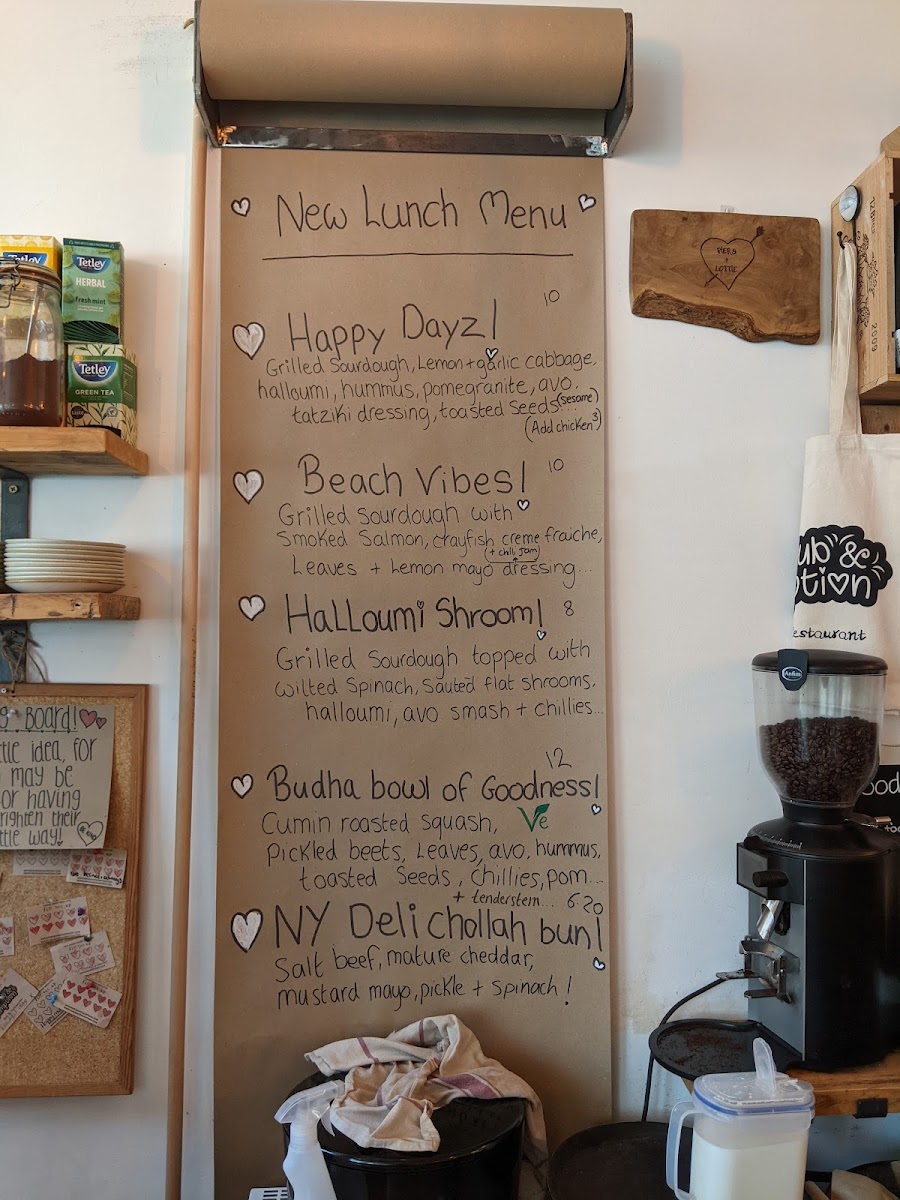 New Lunch Menu
Happy Dayz! 10
Grilled Sourdough, Lemon + garlic cabbage,
halloumi, hummus, pomegranite, avo,
tatziki dressing, toasted seeds... (sesame)
(Add chicken 3)
Beach Vibes! 10
Grilled sourdough with
Smoked Salmon, crayfish creme fraiche,
(+ chilli jam)
Leaves + Lemon mayo dressing...
Halloumi Shroom! 8
Grilled Sourdough topped with
wilted Spinach, sauted flat shrooms,
halloumi, avo smash + chillies...
12
Budha bowl of Goodness!
Cumin roasted squash, Ve
pickled beets, Leaves, avo, hummus,
toasted Seeds, chillies, pom...
+ tenderstem... 6.20
NY Deli chollah bun!
Salt beef, mature cheddar,
mustard mayo, pickle + spinach!
Tetley
Tetley
HERBAL
fresh mint
Tetley
GREEN TEA
g Board!
ttle idea, for
may be
or having
righten their
ttle way!
PIERS
+
LOTTIE
2009
ub &
otion
estaurant